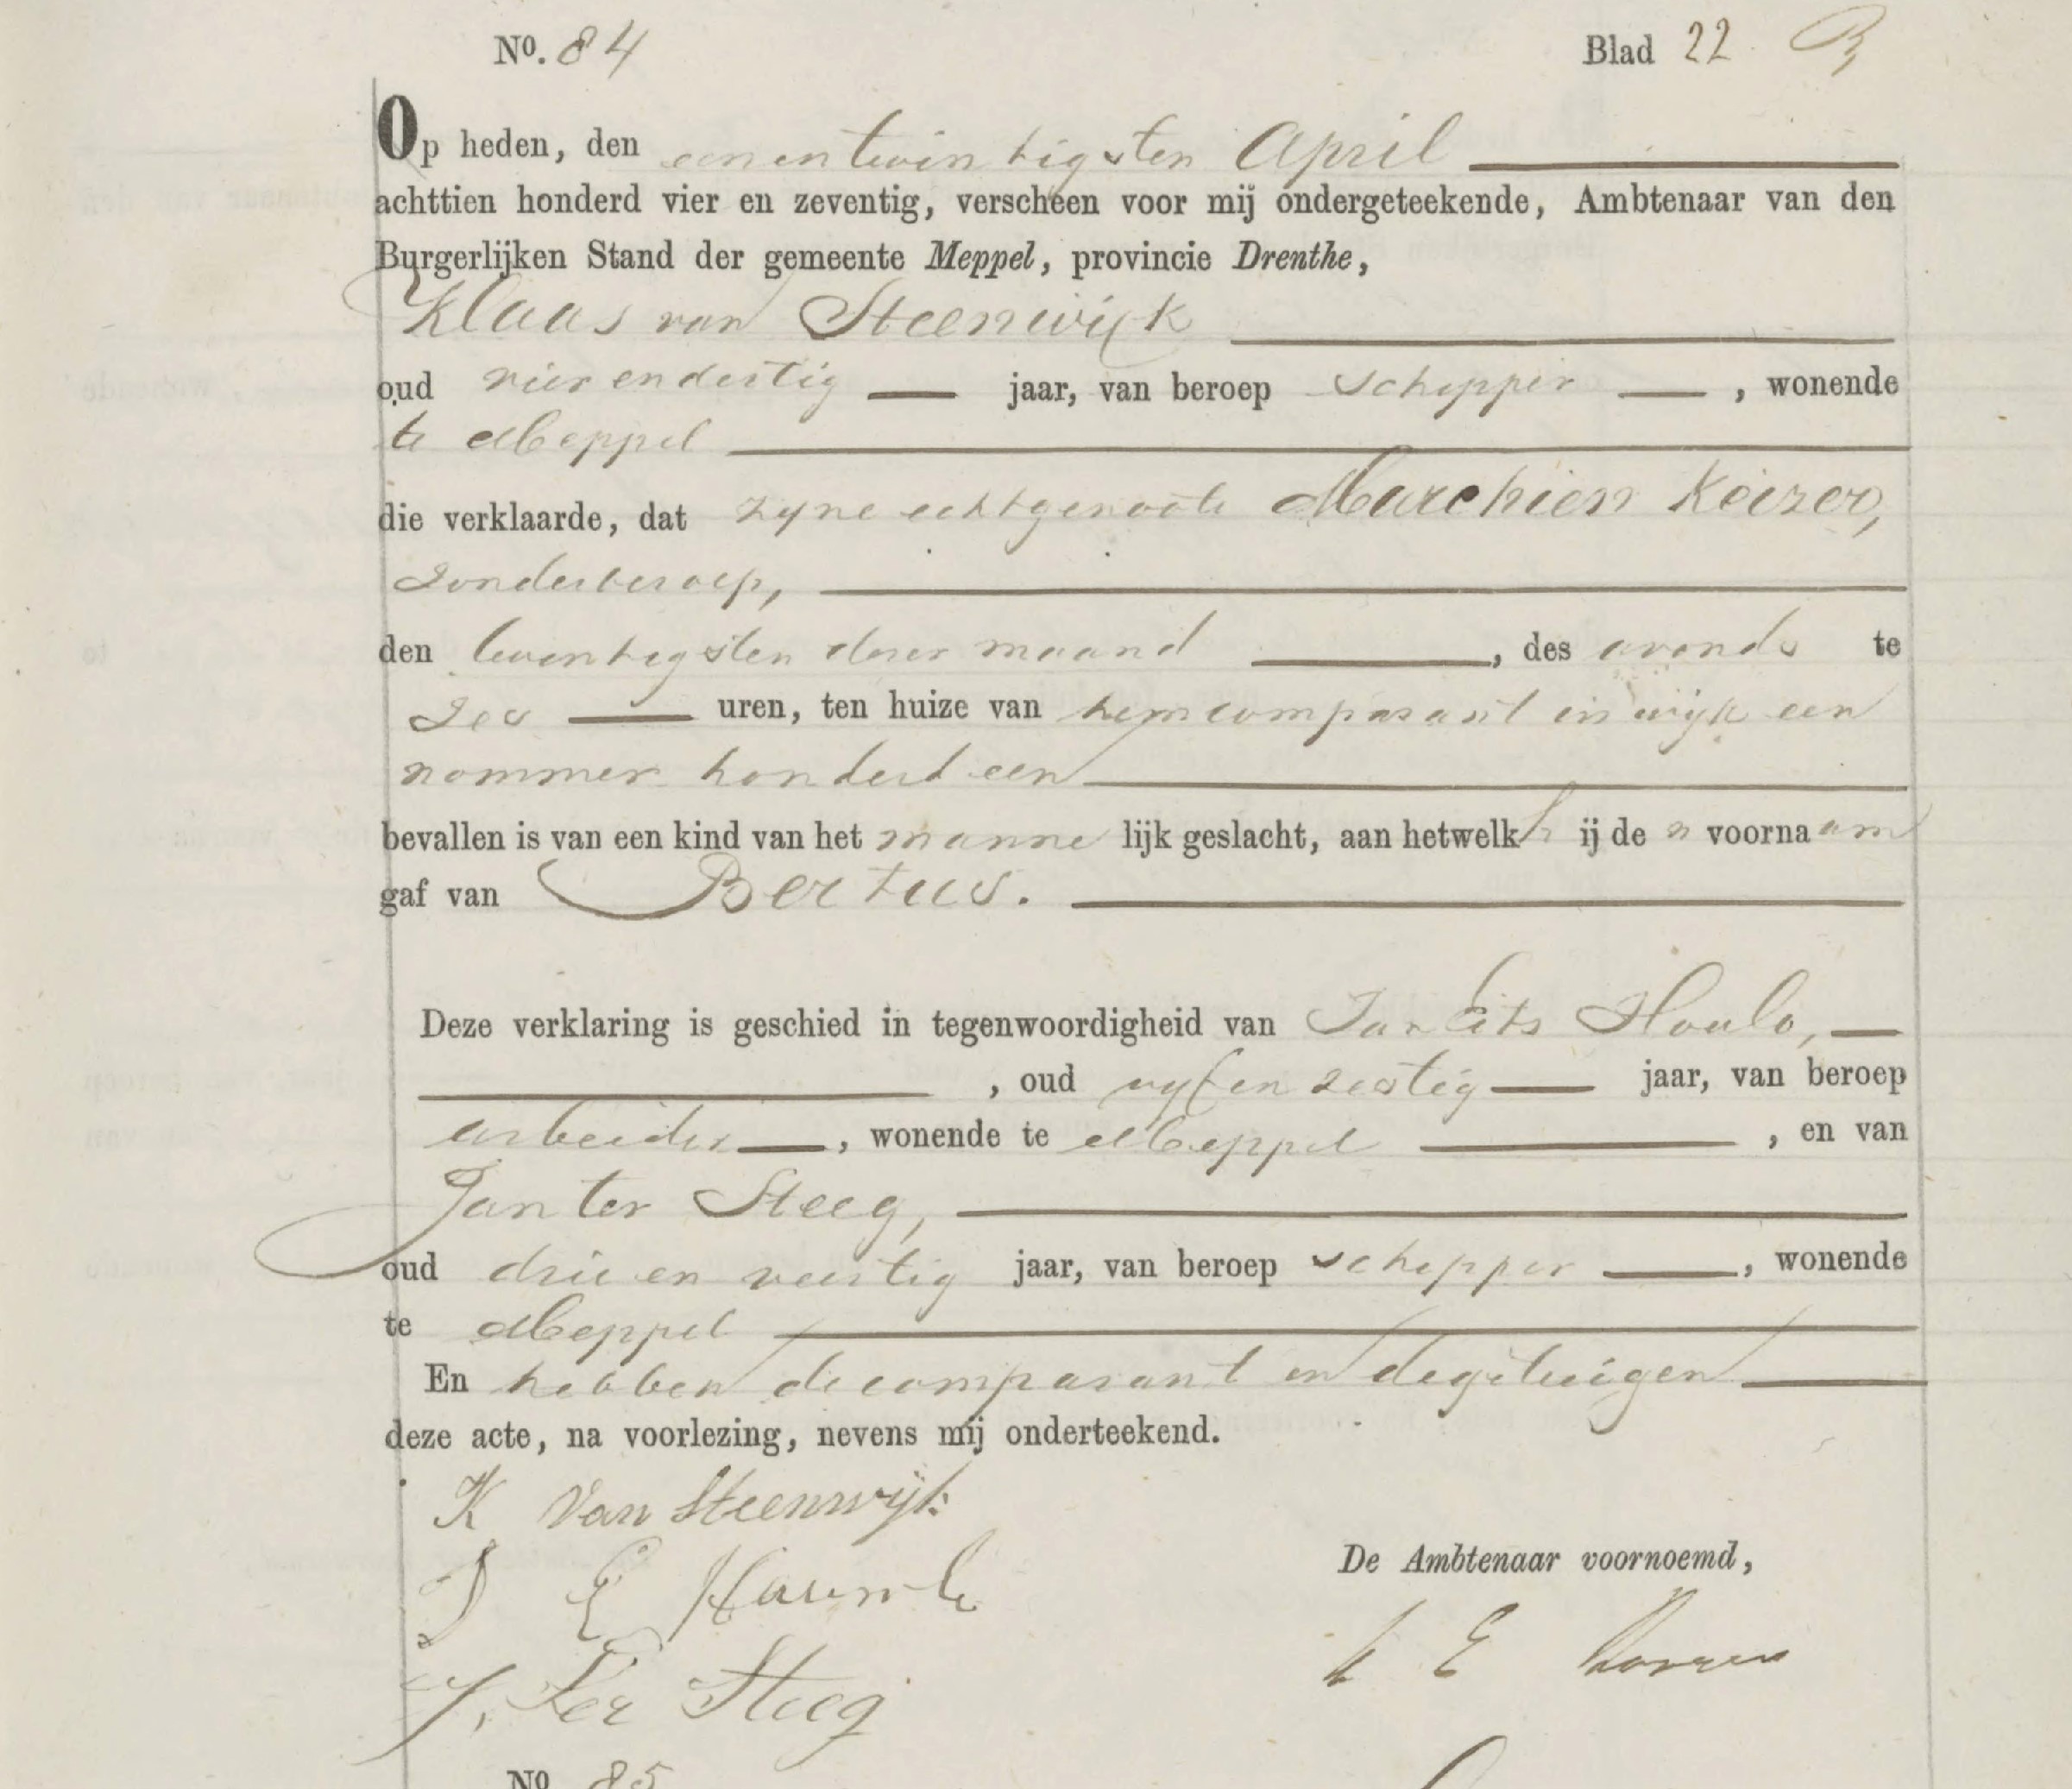 Nº. 84 Blad 22
Op heden, den eenentwintigsten April
achttien honderd vier en zeventig, verscheen voor mij ondergeteekende, Ambtenaar van den
Burgerlijken Stand der gemeente Meppel, provincie Drenthe,
Klaas van Steenwijk
oud vier en dertig jaar, van beroep schipper, wonende
te Meppel
die verklaarde, dat zyne echtgenoote Marchien Keizer,
Zonder beroep,
den twentigsten dezer maand, des avonds te
Zes uren, ten huize van hem comparant in wijk een
nommer honderd een
bevallen is van een kind van het mannelijk geslacht, aan hetwelk hij den voornaam
gaf van Bertus.
Deze verklaring is geschied in tegenwoordigheid van Jan Eits
, oud vyf en zestig jaar, van beroep
arbeider, wonende te Meppel, en van
Jan ter Steeg,
oud drie en veertig jaar, van beroep schipper, wonende
te Meppel
En hebben de comparant en de getuigen
deze acte, na voorlezing, nevens mij onderteekend.
K van Steenwijk
J E
De Ambtenaar voornoemd,
J. Ter Steeg
Nº 85